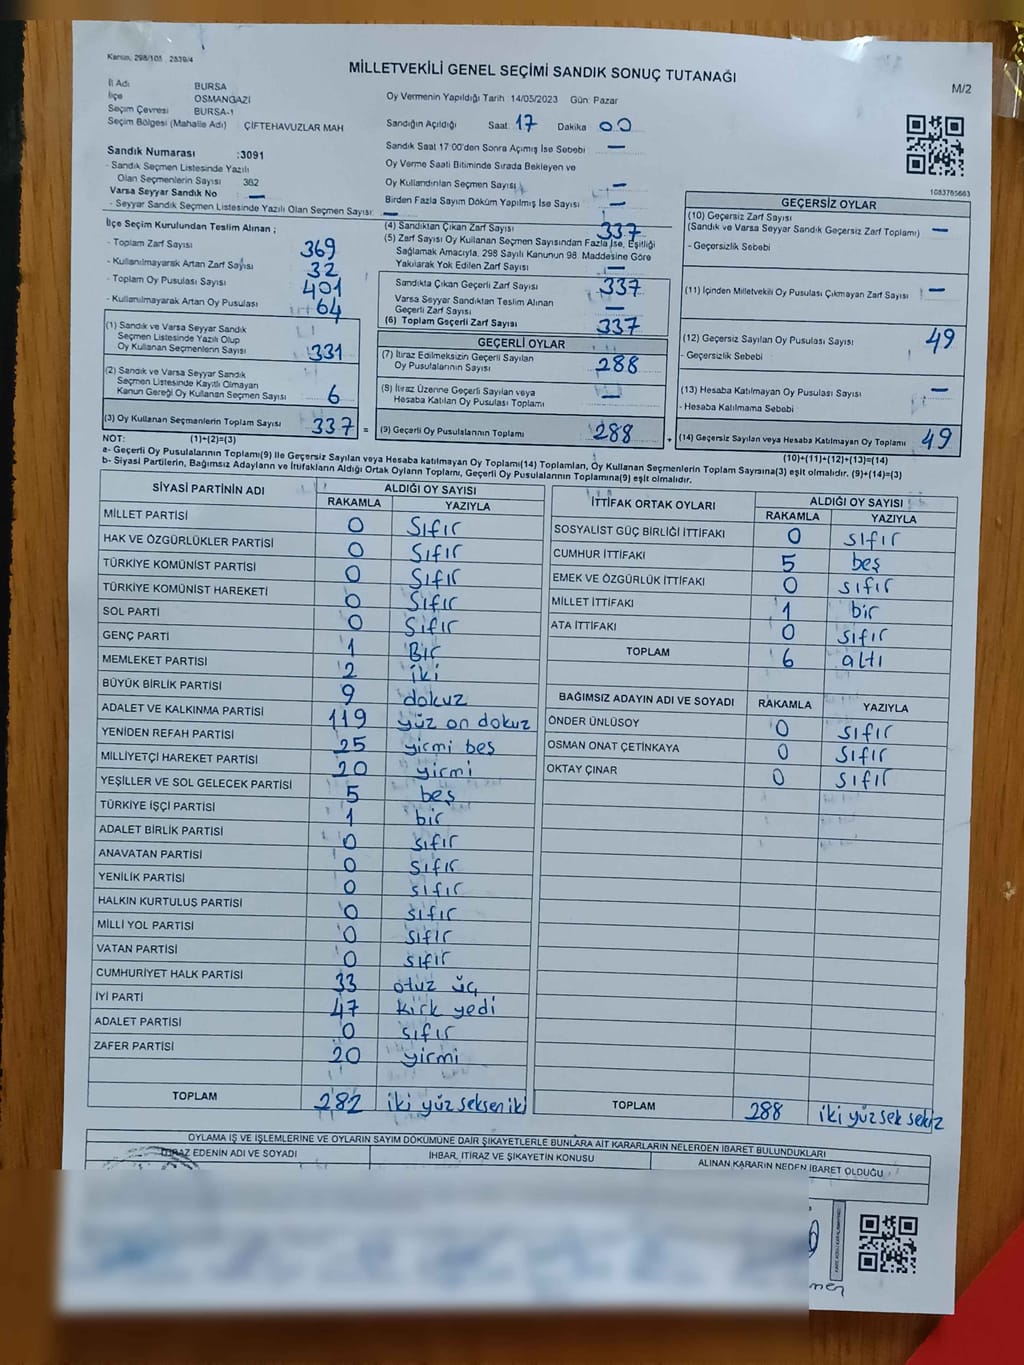 Kanun, 298/105 , 2839/4
MİLLETVEKİLİ GENEL SEÇİMİ SANDIK SONUÇ TUTANAĞI
M/2
İl Adı BURSA
İlçe OSMANGAZİ
Seçim Çevresi BURSA-1
Seçim Bölgesi (Mahalle Adı) ÇİFTEHAVUZLAR MAH
Oy Vermenin Yapıldığı Tarih 14/05/2023 Gün: Pazar
Sandığın Açıldığı Saat 17 Dakika 00
Sandık Saat 17:00'den Sonra Açımış İse Sebebi —
Oy Verme Saati Bitiminde Sırada Bekleyen ve
Oy Kullandırılan Seçmen Sayısı —
Birden Fazla Sayım Döküm Yapılmış İse Sayısı —
1083765663
Sandık Numarası :3091
- Sandık Seçmen Listesinde Yazılı
Olan Seçmenlerin Sayısı 362
Varsa Seyyar Sandık No —
- Seyyar Sandık Seçmen Listesinde Yazılı Olan Seçmen Sayısı: —
İlçe Seçim Kurulundan Teslim Alınan ;
- Toplam Zarf Sayısı 369
- Kullanılmayarak Artan Zarf Sayısı 32
- Toplam Oy Pusulası Sayısı 401
- Kullanılmayarak Artan Oy Pusulası 64
(1) Sandık ve Varsa Seyyar Sandık
Seçmen Listesinde Yazılı Olup
Oy Kullanan Seçmenlerin Sayısı 331
(2) Sandık ve Varsa Seyyar Sandık
Seçmen Listesinde Kayıtlı Olmayan
Kanun Gereği Oy Kullanan Seçmen Sayısı 6
(3) Oy Kullanan Seçmenlerin Toplam Sayısı 337 =
(4) Sandıktan Çıkan Zarf Sayısı 337
(5) Zarf Sayısı Oy Kullanan Seçmen Sayısından Fazla İse, Eşitliği
Sağlamak Amacıyla, 298 Sayılı Kanunun 98 Maddesine Göre
Yakılarak Yok Edilen Zarf Sayısı —
Sandıkta Çıkan Geçerli Zarf Sayısı 337
Varsa Seyyar Sandıktan Teslim Alınan
Geçerli Zarf Sayısı —
(6) Toplam Geçerli Zarf Sayısı 337
GEÇERLİ OYLAR
(7) İtiraz Edilmeksizin Geçerli Sayılan
Oy Pusulalarının Sayısı 288
(8) İtiraz Üzerine Geçerli Sayılan veya
Hesaba Katılan Oy Pusulası Toplamı —
(9) Geçerli Oy Pusulalarının Toplamı 288 +
GEÇERSİZ OYLAR
(10) Geçersiz Zarf Sayısı
(Sandık ve Varsa Seyyar Sandık Geçersiz Zarf Toplamı) —
- Geçersizlik Sebebi
(11) İçinden Milletvekili Oy Pusulası Çıkmayan Zarf Sayısı —
(12) Geçersiz Sayılan Oy Pusulası Sayısı 49
- Geçersizlik Sebebi
(13) Hesaba Katılmayan Oy Pusulası Sayısı —
- Hesaba Katılmama Sebebi
(14) Geçersiz Sayılan veya Hesaba Katılmayan Oy Toplamı 49
NOT: (1)+(2)=(3) (10)+(11)+(12)+(13)=(14)
a- Geçerli Oy Pusulalarının Toplamı(9) ile Geçersiz Sayılan veya Hesaba katılmayan Oy Toplamı(14) Toplamları, Oy Kullanan Seçmenlerin Toplam Sayısına(3) eşit olmalıdır. (9)+(14)=(3)
b- Siyasi Partilerin, Bağımsız Adayların ve İttifakların Aldığı Ortak Oyların Toplamı, Geçerli Oy Pusulalarının Toplamına(9) eşit olmalıdır.
SİYASİ PARTİNİN ADI ALDIĞI OY SAYISI
RAKAMLA YAZIYLA
MİLLET PARTİSİ 0 Sıfır
HAK VE ÖZGÜRLÜKLER PARTİSİ 0 Sıfır
TÜRKİYE KOMÜNİST PARTİSİ 0 Sıfır
TÜRKİYE KOMÜNİST HAREKETİ 0 Sıfır
SOL PARTİ 0 Sıfır
GENÇ PARTİ 1 Bir
MEMLEKET PARTİSİ 2 iki
BÜYÜK BİRLİK PARTİSİ 9 dokuz
ADALET VE KALKINMA PARTİSİ 119 yüz on dokuz
YENİDEN REFAH PARTİSİ 25 yirmi beş
MİLLİYETÇİ HAREKET PARTİSİ 20 yirmi
YEŞİLLER VE SOL GELECEK PARTİSİ 5 beş
TÜRKİYE İŞÇİ PARTİSİ 1 bir
ADALET BİRLİK PARTİSİ 0 sıfır
ANAVATAN PARTİSİ 0 sıfır
YENİLİK PARTİSİ 0 sıfır
HALKIN KURTULUŞ PARTİSİ 0 sıfır
MİLLİ YOL PARTİSİ 0 sıfır
VATAN PARTİSİ 0 sıfır
CUMHURİYET HALK PARTİSİ 33 otuz üç
İYİ PARTİ 47 kırk yedi
ADALET PARTİSİ 0 sıfır
ZAFER PARTİSİ 20 yirmi
TOPLAM 282 iki yüz seksen iki
İTTİFAK ORTAK OYLARI ALDIĞI OY SAYISI
RAKAMLA YAZIYLA
SOSYALİST GÜÇ BİRLİĞİ İTTİFAKI 0 sıfır
CUMHUR İTTİFAKI 5 beş
EMEK VE ÖZGÜRLÜK İTTİFAKI 0 sıfır
MİLLET İTTİFAKI 1 bir
ATA İTTİFAKI 0 sıfır
TOPLAM 6 altı
BAĞIMSIZ ADAYIN ADI VE SOYADI RAKAMLA YAZIYLA
ÖNDER ÜNLÜSOY 0 sıfır
OSMAN ONAT ÇETİNKAYA 0 sıfır
OKTAY ÇINAR 0 sıfır
TOPLAM 288 iki yüz sek sekiz
OYLAMA İŞ VE İŞLEMLERİNE VE OYLARIN SAYIM DÖKÜMÜNE DAİR ŞİKAYETLERLE BUNLARA AİT KARARLARIN NELERDEN İBARET BULUNDUKLARI
İTİRAZ EDENİN ADI VE SOYADI İHBAR, İTİRAZ VE ŞİKAYETİN KONUSU ALINAN KARARIN NEDEN İBARET OLDUĞU